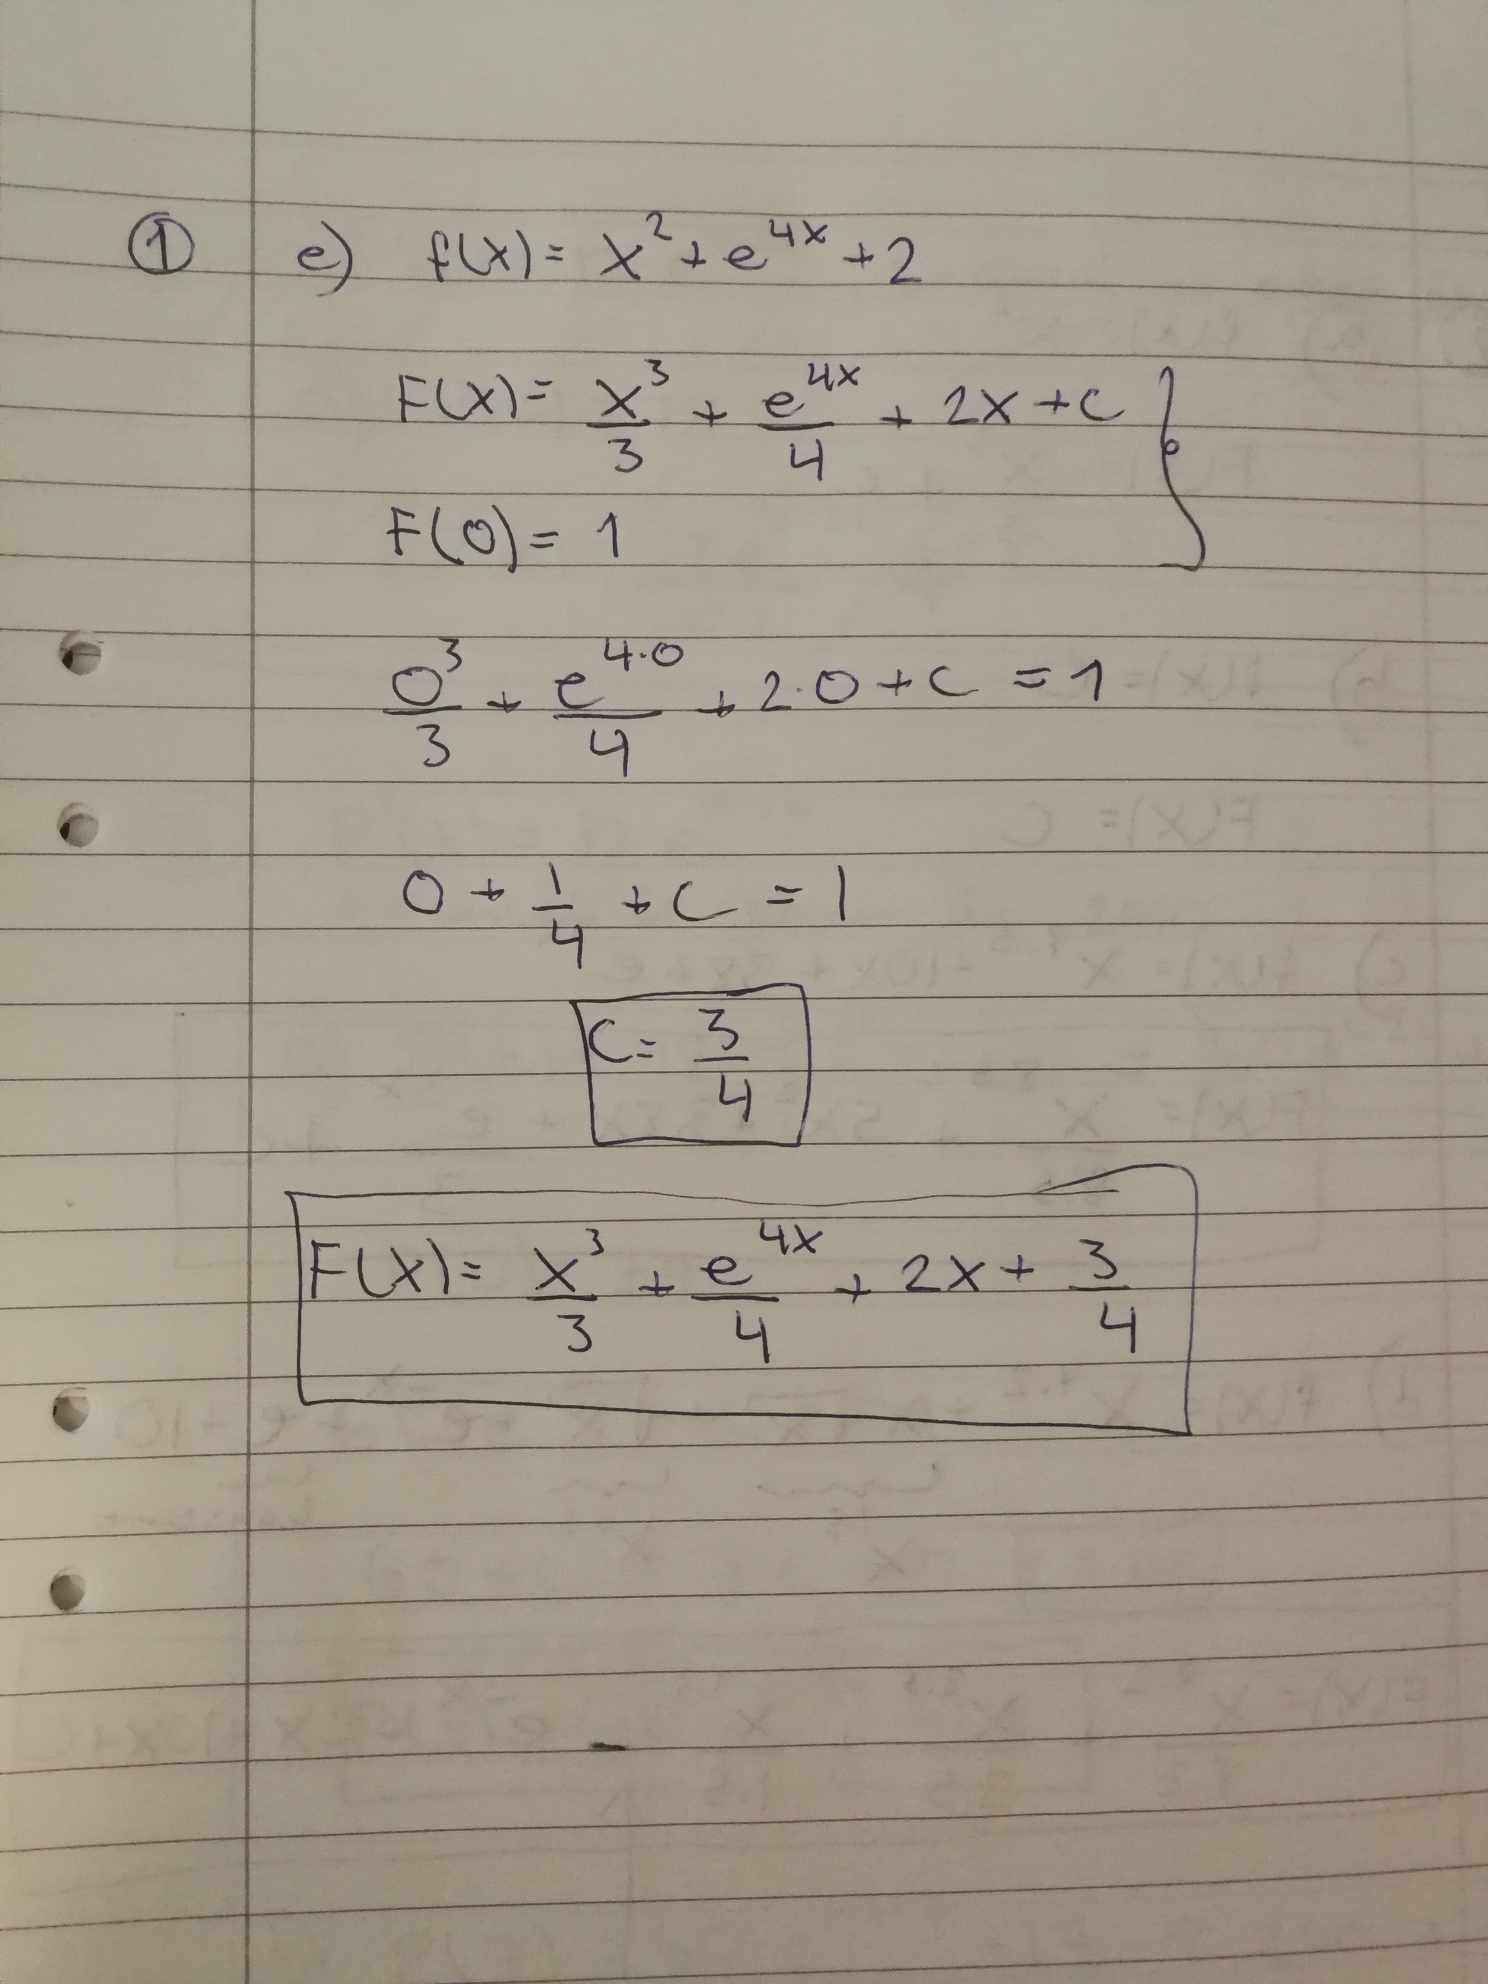 ① e) f(x) = x² + e^{4x} + 2
F(x) = x³/3 + e^{4x}/4 + 2x + c }
F(0) = 1
0³/3 + e^{4·0}/4 + 2·0 + c = 1
0 + 1/4 + c = 1
c = 3/4
F(x) = x³/3 + e^{4x}/4 + 2x + 3/4